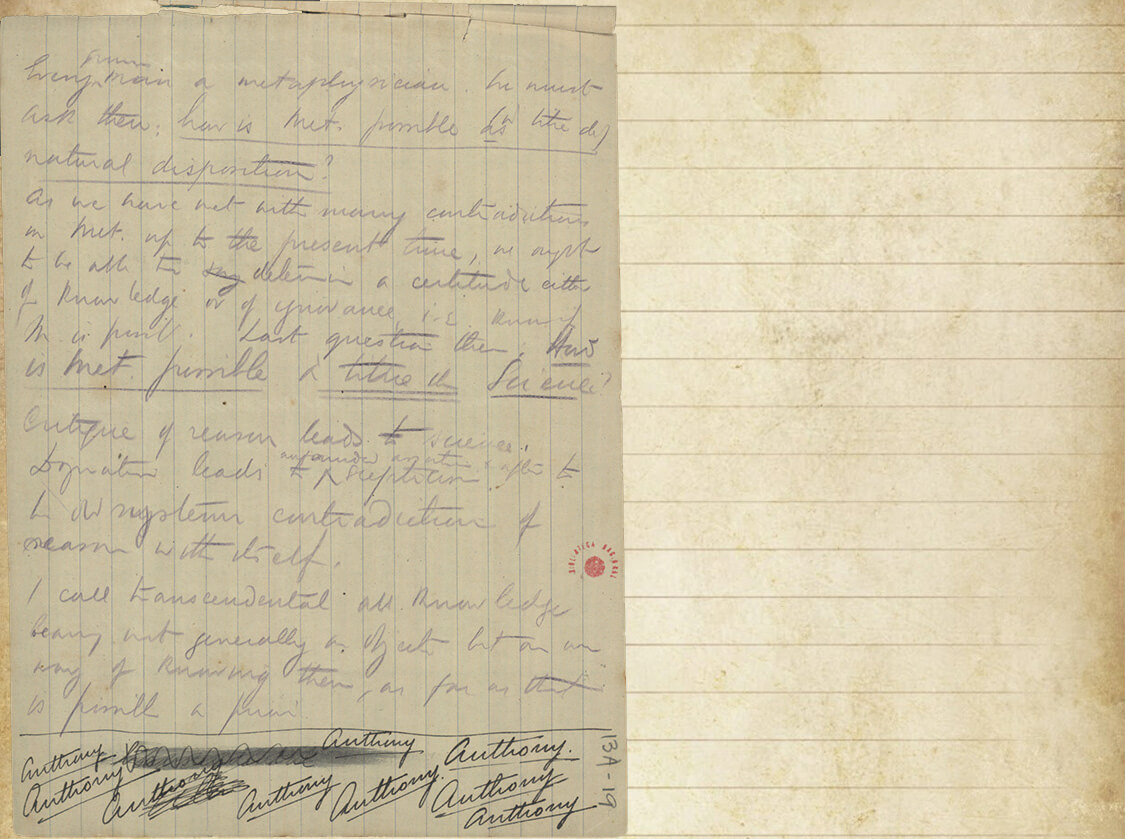 human
Every man a metaphysician. he must
ask then; how is Met. possible (as titre de)
natural disposition?
As we have met with many contradictions
in Met. up to the present time, we ought
to be able to say determin a certitude either
of knowledge or of ignorance, i.e. know if
M. is possib. Last question then; How
is Met. possible à titre de Science?
Critique of reason leads to science.
unfounded assertion & after to
Dogmatism leads to scepticism
to old systems contradiction of
reason with itself.
I call transcendental all knowledge
bearing not generally on objects but on our
way of knowing them, as far as that
is possible a priori.
Anthony Anthony Anthony.
Anthony Anthony Anthony Anthony. Anthony
Anthony
13A-19
BIBLIOTECA NACIONAL